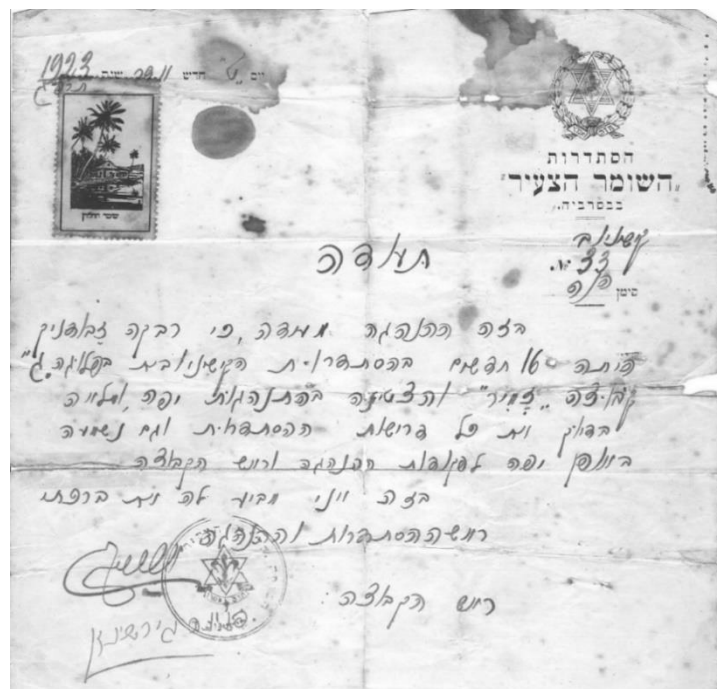 יום ט' חדש אדר שנת 1923
תרפ"ג
הסתדרות
"השומר הצעיר"
בבסרביה.
קישינוב
№ 33
סימן הנה
שמר חלוץ
תעודה
בזה ההנהגה מעידה, כי רבקה זבאדניק
היתה 16 חדשים בהסתדרות הקישינובית בפלוגה ג'
קבוצה "זמיר" והצטינה בהתנהגות יפה, מלאה
בדיוק את כל דרישות ההסתדרות וגם נשמעה
באופן יפה לפקודות ההנהגה וראש הקבוצה
בזה אני מביע לה את ברכתי
ראש ההסתדרות וההנהגה
ראש הקבוצה: